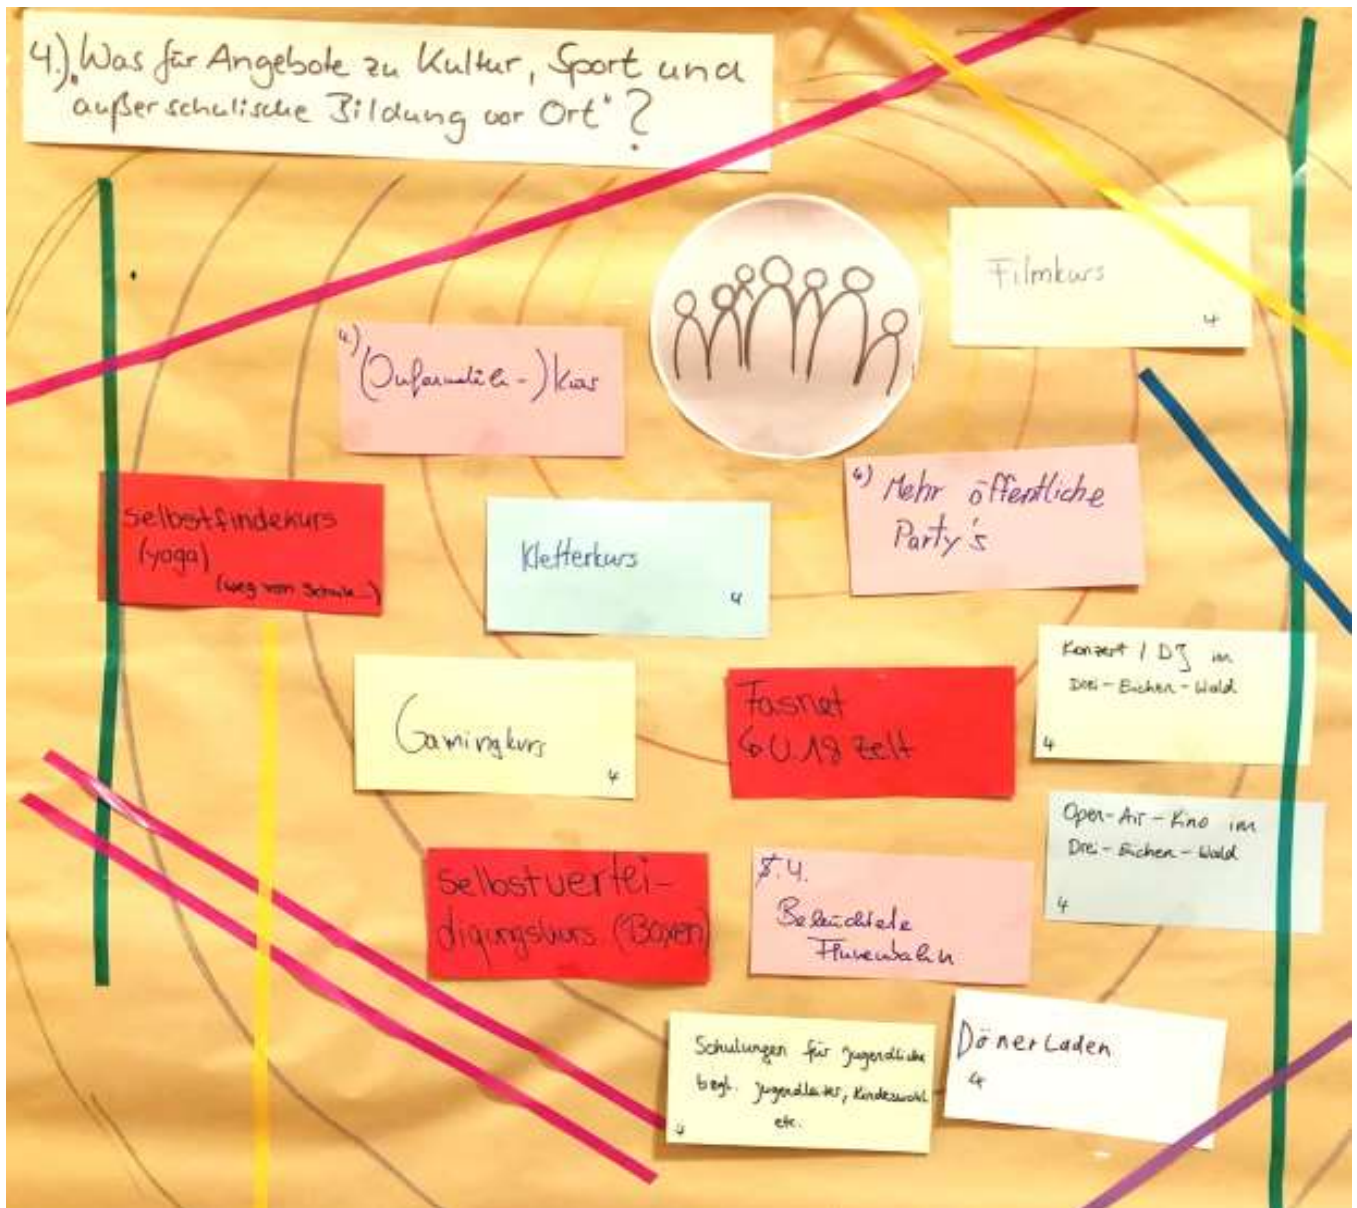 4.) „Was für Angebote zu Kultur, Sport und
außerschulische Bildung vor Ort“ ?
Filmkurs
4
4.)
(Informatik-) Kurs
4)
Mehr öffentliche
Party's
Selbstfindekurs
(yoga)
(weg von Schule...)
Kletterkurs
4
Konzert / DJ im
Drei-Eichen-Wald
4
Gamingkurs
4
Fasnet
U.18 Zelt
Open-Air-Kino im
Drei-Eichen-Wald
4
Selbstvertei-
digungskurs (Boxen)
4.
Beleuchtete
Schulungen für Jugendliche
bzgl. Jugendleiter, Kindeswohl
etc.
4
DönerLaden
4